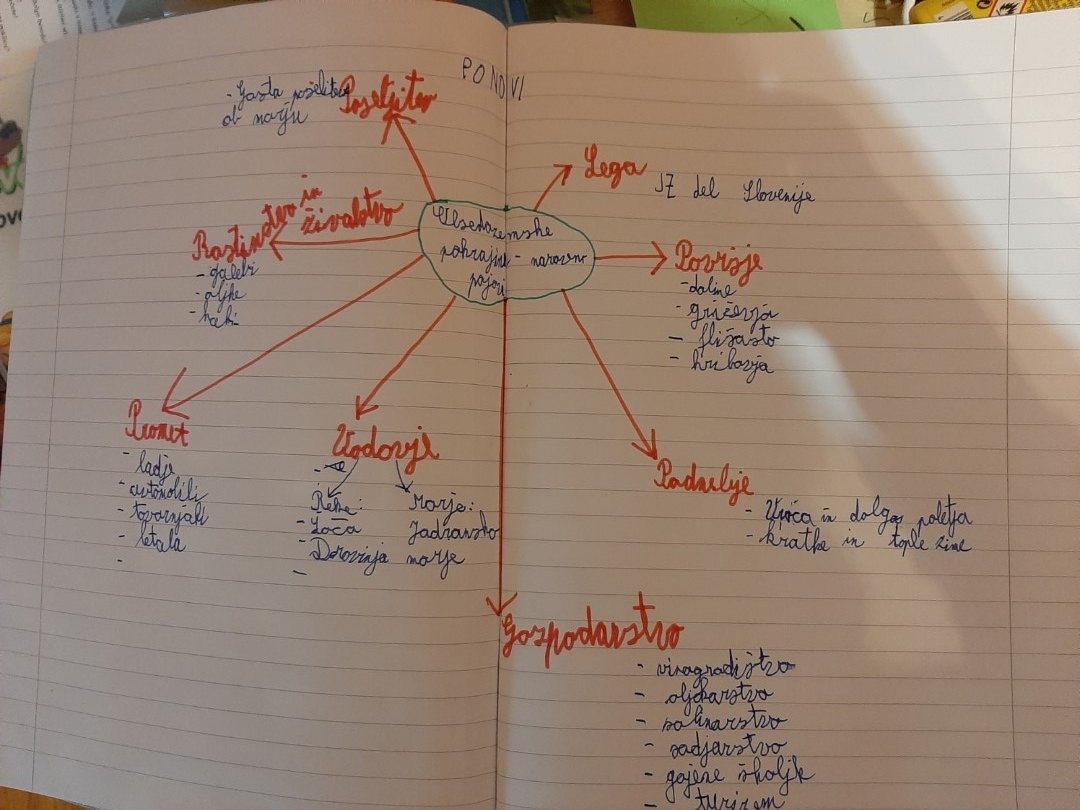 PONOVI
Poselitev
- Gosta poselitev
ob morju
Lega
JZ del Slovenije
Rastinstvo in
živalstvo
- galebi
- oljke
- kaki
Obsredozemske
pokrajine - naravno
pojavi
Površje
- doline
- gričevja
- flišasto
- hribovja
Promet
- ladje
- avtomobili
- tovornjaki
- letala
-
Vodovje
Reke:
- Soča
- Derovinja
-
Morje:
Jadransko
morje
Podnebje
- Vroča in dolga poletja
- kratke in tople zime
Gospodarstvo
- vinogradništvo
- oljkarstvo
- solinarstvo
- sadjarstvo
- gojene školjk
- turizem